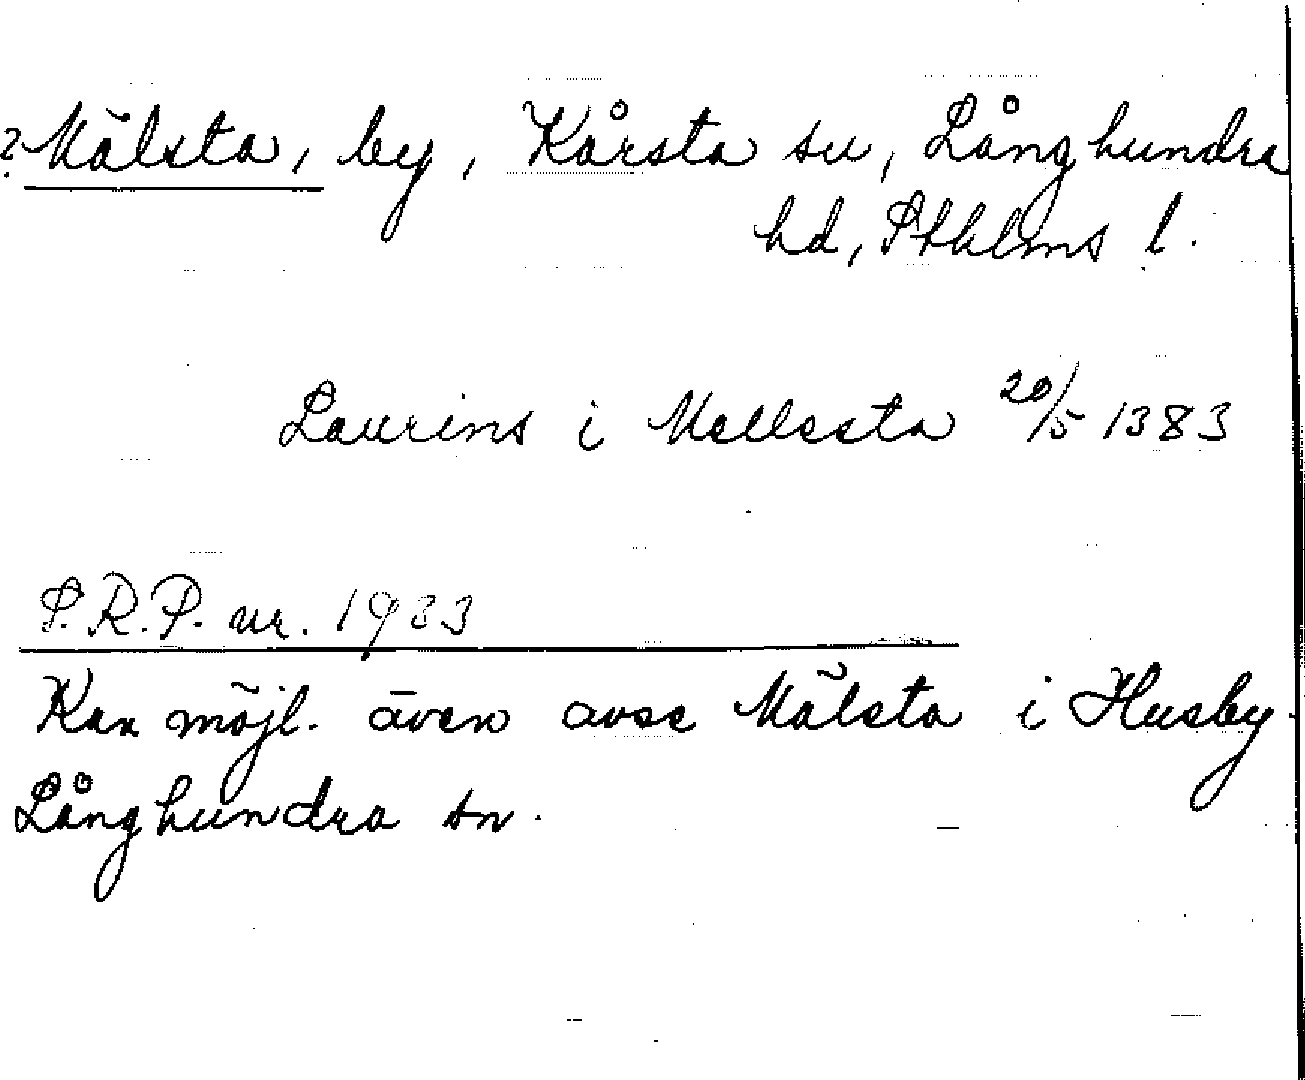 ? Mälsta, by, Kårsta sn, Långhundra
hd, Sthlms l.
Laurins i Mellesta 20/5 1383
S.R.P. nr. 1933
Kan möjl. även avse Mälsta i Husby
Långhundra sn.